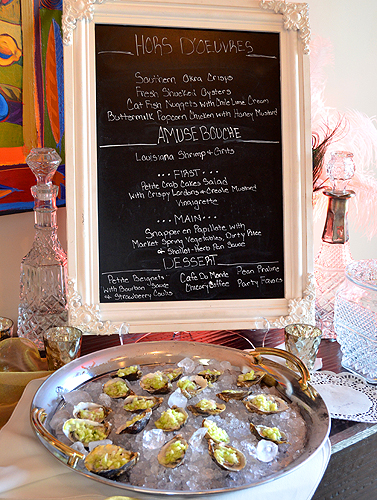 HORS D'OEUVRES
Southern Okra Crisps
Fresh Shucked Oysters
Cat Fish Nuggets with Dale Lime Cream
Buttermilk Popcorn Chicken with Honey Mustard
AMUSE BOUCHE
Louisiana Shrimp & Grits
... FIRST ...
Petite Crab Cakes Salad
with Crispy Lardons & Creole Mustard
Vinaigrette
... MAIN ...
Snapper en Papillote with
Market Spring Vegetables, Dirty Rice
& Shallot-Herb Pan Sauce
DESSERT
Petite Beignets
with Bourbon Sauce
& Strawberry Coulis
Cafe Du Monde
Chicory Coffee
Pecan Praline
Party Favors